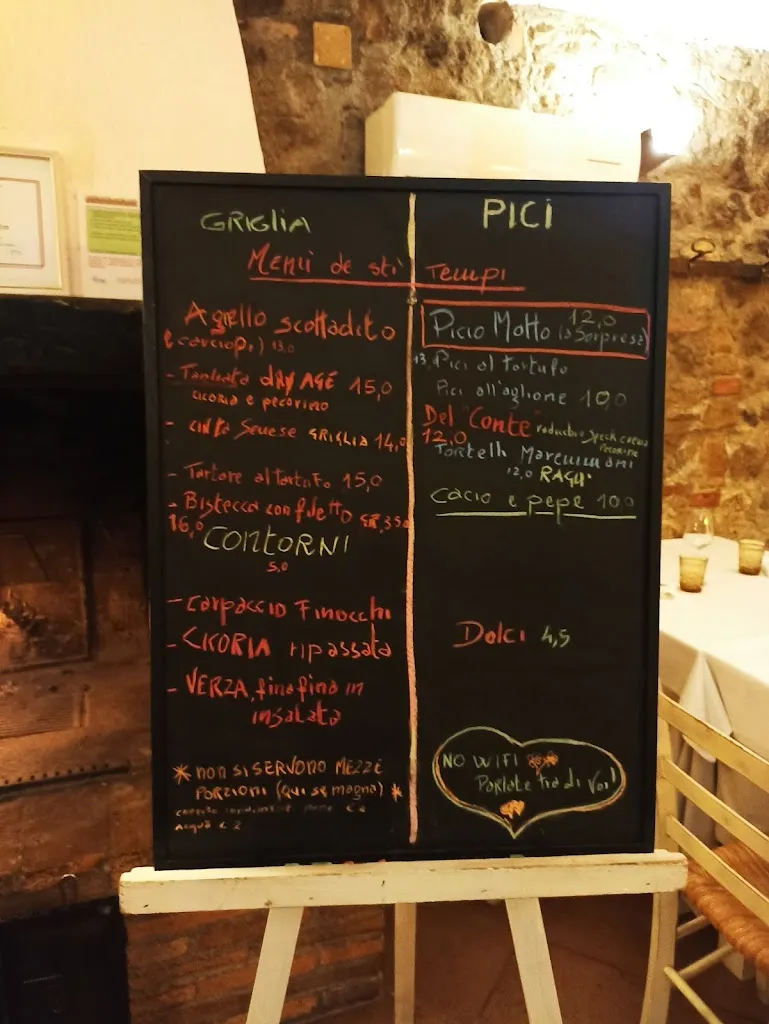 GRIGLIA
Menù de sti' Tempi
Agnello scottadito
(e carciofi) 13,0
- Tagliata dry AGE 15,0
cicoria e pecorino
- cinta Senese GRIGLIA 14,0
- Tartare al tartufo 15,0
- Bistecca con filetto GR,350
16,0
CONTORNI
5,0
- carpaccio Finocchi
- CICORIA ripassata
- VERZA, fina fina in
insalata
* non si SERVONO MEZZE
PORZIONI (qui se magna) *
coperto
acqua € 2
PICI
12,0
Picio Motto (a Sorpresa)
13, Pici al tartufo
Pici all'aglione 10,0
Del "Conte" radicchio speck crema
pecorino
12,0
Tortelli Maremmani
12,0 RAGU'
cacio e pepe 10,0
Dolci 4,5
NO WIFI
Parlate tra di Voi!